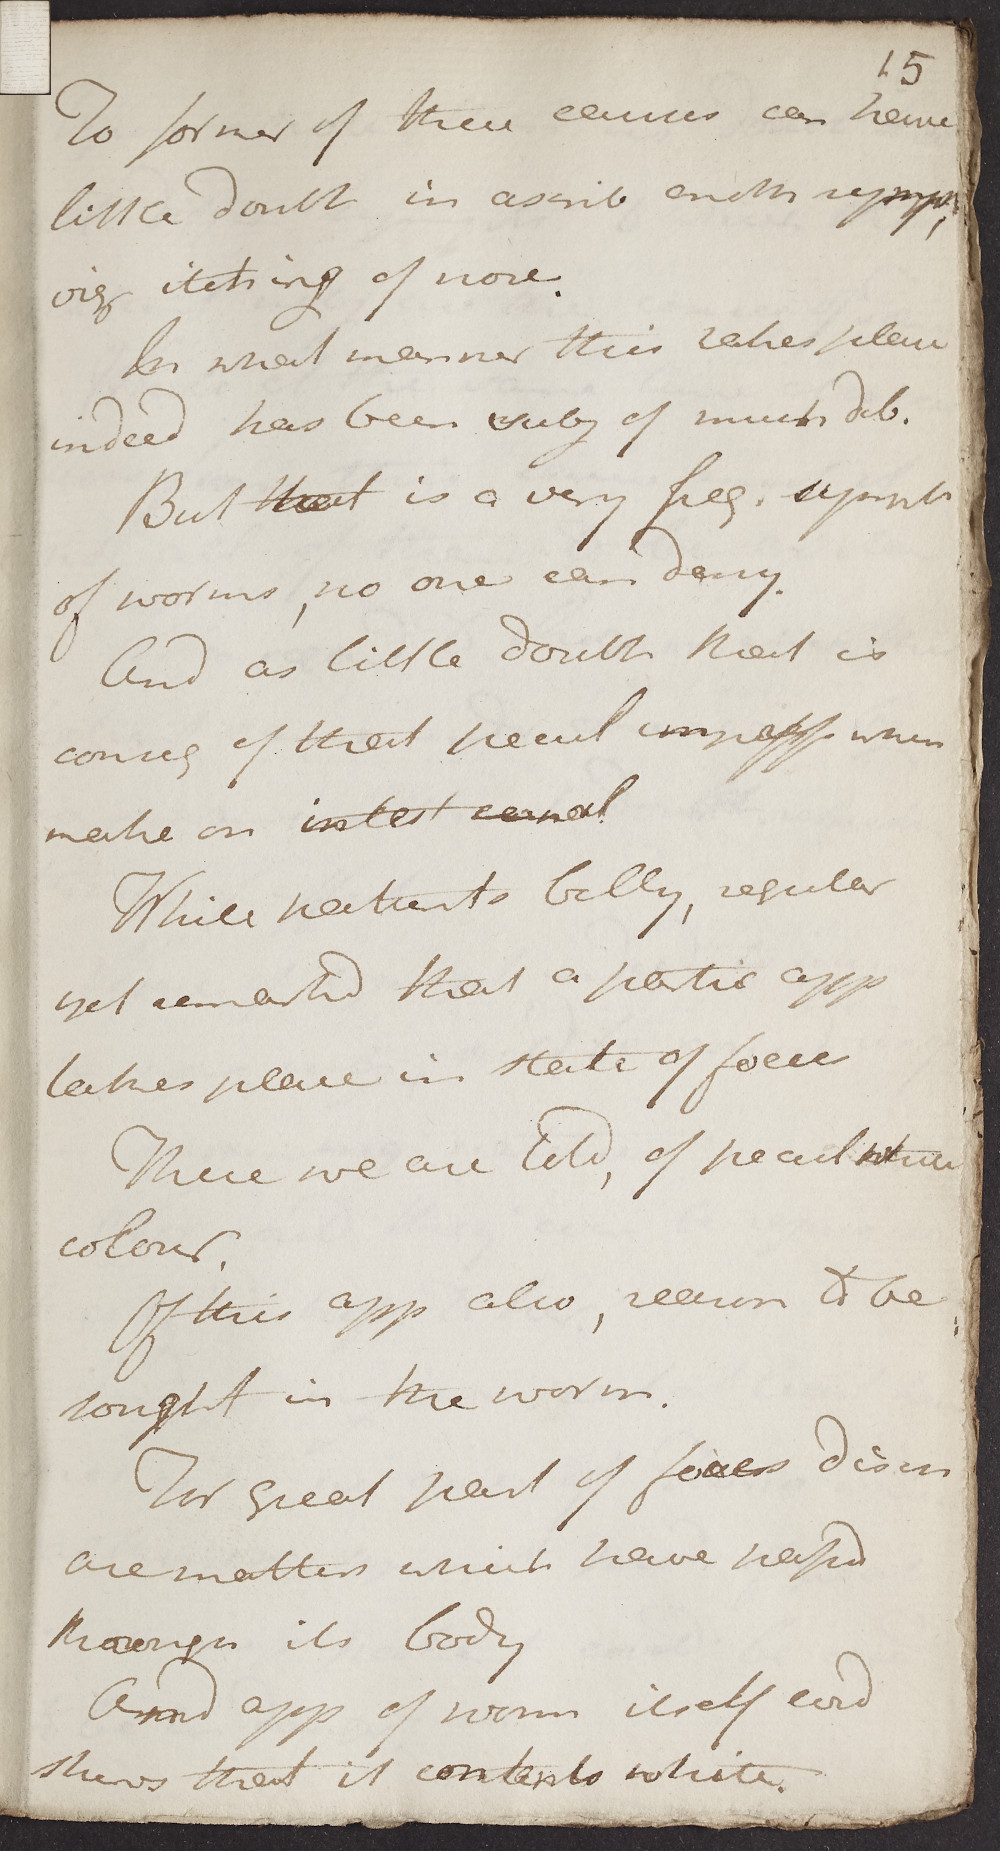 15
To former of these causes can have
little doubt in ascrib anoth symp,
viz itching of nose.
In what manner this takes place
indeed has been subj of much deb.
But that is a very freq. sympt
of worms, no one can deny.
And as little doubt that is
conseq of that pecul impress when
make on intest canal
While patients belly, regular
yet remarkd that a partic app
takes place in state of foeces
These we are told, of pecul white
colour.
Of this app also, reason to be
sought in the worm.
For great part of foeces disch
are matters which have passd
through its body
And app of worm itself
shews that it contents white.